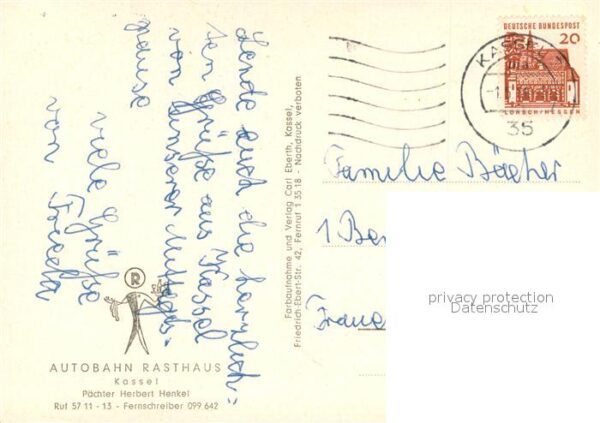 sende euch die herzlich=
sten Grüße aus Kassel
von unserer Mittags-
pause
viele Grüße
von
AUTOBAHN RASTHAUS
Kassel
Pächter Herbert Henkel
Ruf 57 11 - 13 - Fernschreiber 099 642
Farbaufnahme und Verlag Carl Eberth, Kassel,
Friedrich-Ebert-Str. 42, Fernruf 1 35 18 - Nachdruck verboten
DEUTSCHE BUNDESPOST
20
LORSCH/HESSEN
KASSEL
35
Familie
1 Ber
privacy protection
Datenschutz
R